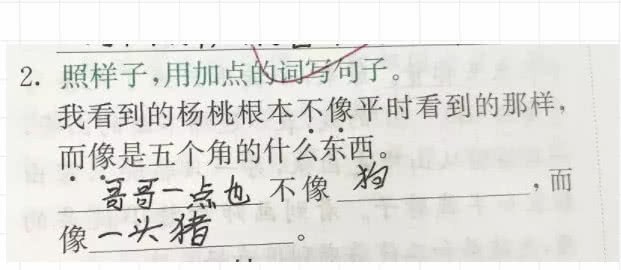 2. 照样子,用加点的词写句子。
我看到的杨桃根本不像平时看到的那样,
而像是五个角的什么东西。
哥哥一点也 不像 狗 ,而
像一头猪。